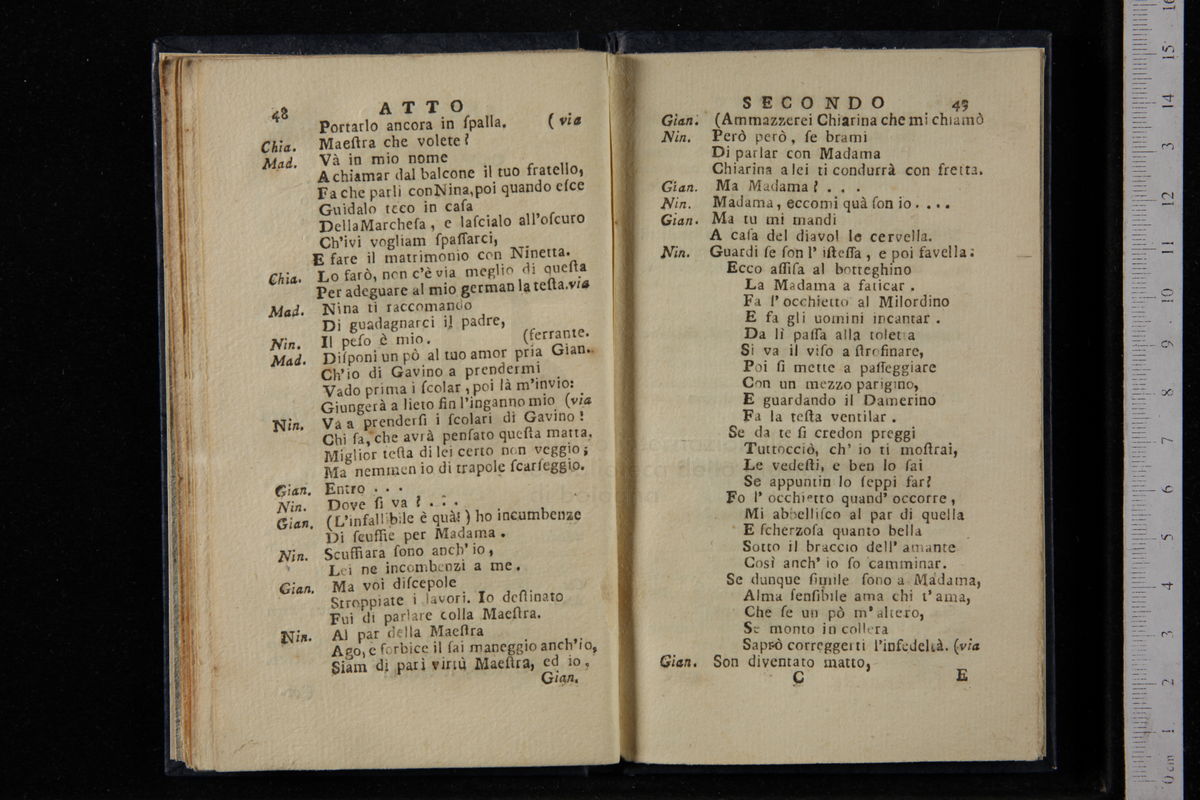 48 ATTO
Portarlo ancora in ſpalla. ( via
Chia. Maeſtra che volete?
Mad. Và in mio nome
A chiamar dal balcone il tuo fratello,
Fa che parli conNina,poi quando eſce
Guidalo teco in caſa
DellaMarcheſa, e laſcialo all'oſcuro
Ch'ivi vogliam ſpaſſarci,
E fare il matrimonio con Ninetta.
Chia. Lo farò, non c'è via meglio di queſta
Per adeguare al mio german la teſta.via
Mad. Nina ti raccomando
Di guadagnarci il padre,
Nin. Il peſo è mio. (ferrante.
Mad. Diſponi un pò al tuo amor pria Gian.
Ch'io di Gavino a prendermi
Vado prima i ſcolar, poi là m'invio:
Giungerà a lieto fin l'inganno mio (via
Nin. Va a prenderſi i ſcolari di Gavino!
Chi ſa, che avrà penſato queſta matta,
Miglior teſta di lei certo non veggio;
Ma nemmen io di trapole ſcarſeggio.
Gian. Entro . . .
Nin. Dove ſi va? . . .
Gian. (L'infallibile è quà!) ho incumbenze
Di ſcuffie per Madama.
Nin. Scuffiara ſono anch'io,
Lei ne incombenzi a me.
Gian. Ma voi diſcepole
Stroppiate i lavori. Io deſtinato
Fui di parlare colla Maeſtra.
Nin. Al par della Maeſtra
Ago, e forbice il ſai maneggio anch'io,
Siam di pari virtù Maeſtra, ed io,
Gian.
SECONDO 49
Gian. (Ammazzerei Chiarina che mi chiamò
Nin. Però però, ſe brami
Di parlar con Madama
Chiarina a lei ti condurrà con fretta.
Gian. Ma Madama? . . .
Nin. Madama, eccomi quà ſon io. . . .
Gian. Ma tu mi mandi
A caſa del diavol le cervella.
Nin. Guardi ſe ſon l'iſteſſa, e poi favella:
Ecco aſſiſa al botteghino
La Madama a faticar.
Fa l'occhietto al Milordino
E fa gli uomini incantar.
Da lì paſſa alla toletta
Si va il viſo a ſtrofinare,
Poi ſi mette a paſſeggiare
Con un mezzo parigino,
E guardando il Damerino
Fa la teſta ventilar.
Se da te ſi credon preggi
Tuttocciò, ch'io ti moſtrai,
Le vedeſti, e ben lo ſai
Se appuntin lo ſeppi far?
Fo l'occhietto quand'occorre,
Mi abbelliſco al par di quella
E ſcherzoſa quanto bella
Sotto il braccio dell'amante
Così anch'io ſo camminar.
Se dunque ſimile ſono a Madama,
Alma ſenſibile ama chi t'ama,
Che ſe un pò m'altero,
Se monto in collera
Saprò correggerti l'infedeltà. (via
Gian. Son diventato matto,
C E